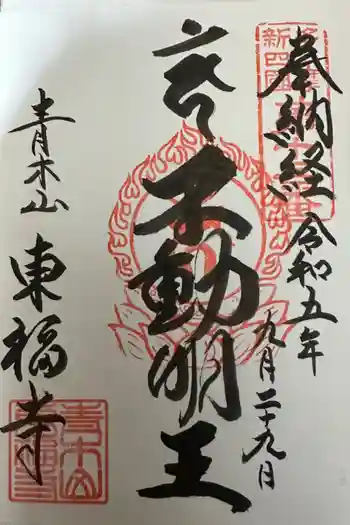 奉納経
令和五年
九月二十九日
不動明王
青木山
東福寺